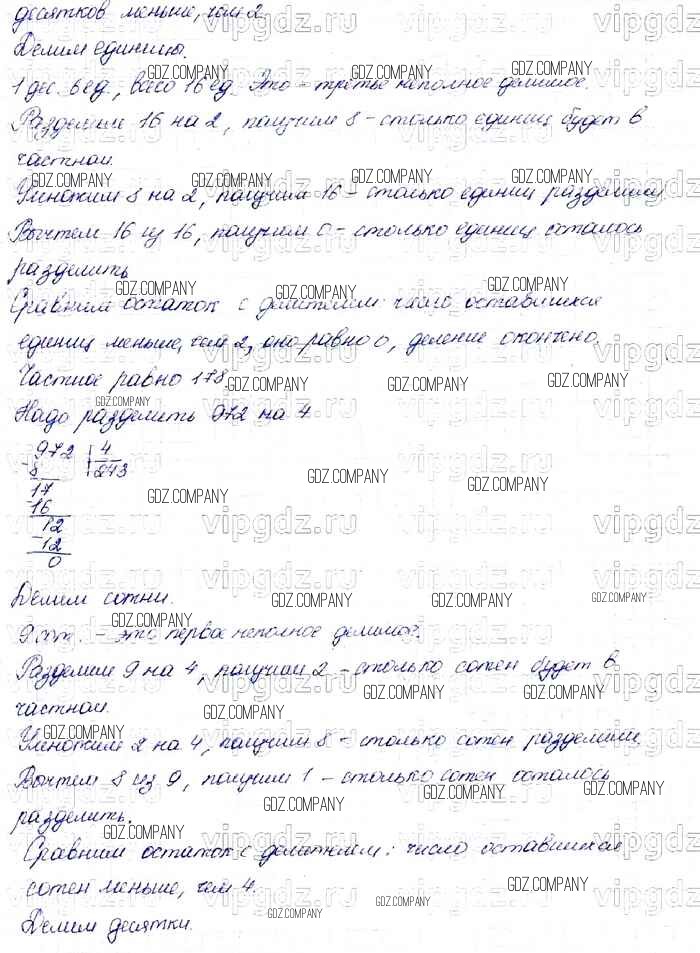 десятков меньше, чем 2.
Делим единицы.
1 дес. 6 ед., всего 16 ед. Это - третье неполное делимое.
Разделим 16 на 2, получим 8 - столько единиц будет в
частном.
Умножим 8 на 2, получим 16 - столько единиц разделили.
Вычтем 16 из 16, получим 0 - столько единиц осталось
разделить
Сравним остаток с делителем: число оставшихся
единиц меньше, чем 2, оно равно 0, деление окончено.
Частное равно 178.
Надо разделить 972 на 4
972 4
-8 243
17
-16
12
-12
0
Делим сотни.
9 сот. - это первое неполное делимое.
Разделим 9 на 4, получим 2 - столько сотен будет в
частном.
Умножим 2 на 4, получим 8 - столько сотен разделили.
Вычтем 8 из 9, получим 1 - столько сотен осталось
разделить.
Сравним остаток с делителем: число оставшихся
сотен меньше, чем 4.
Делим десятки.